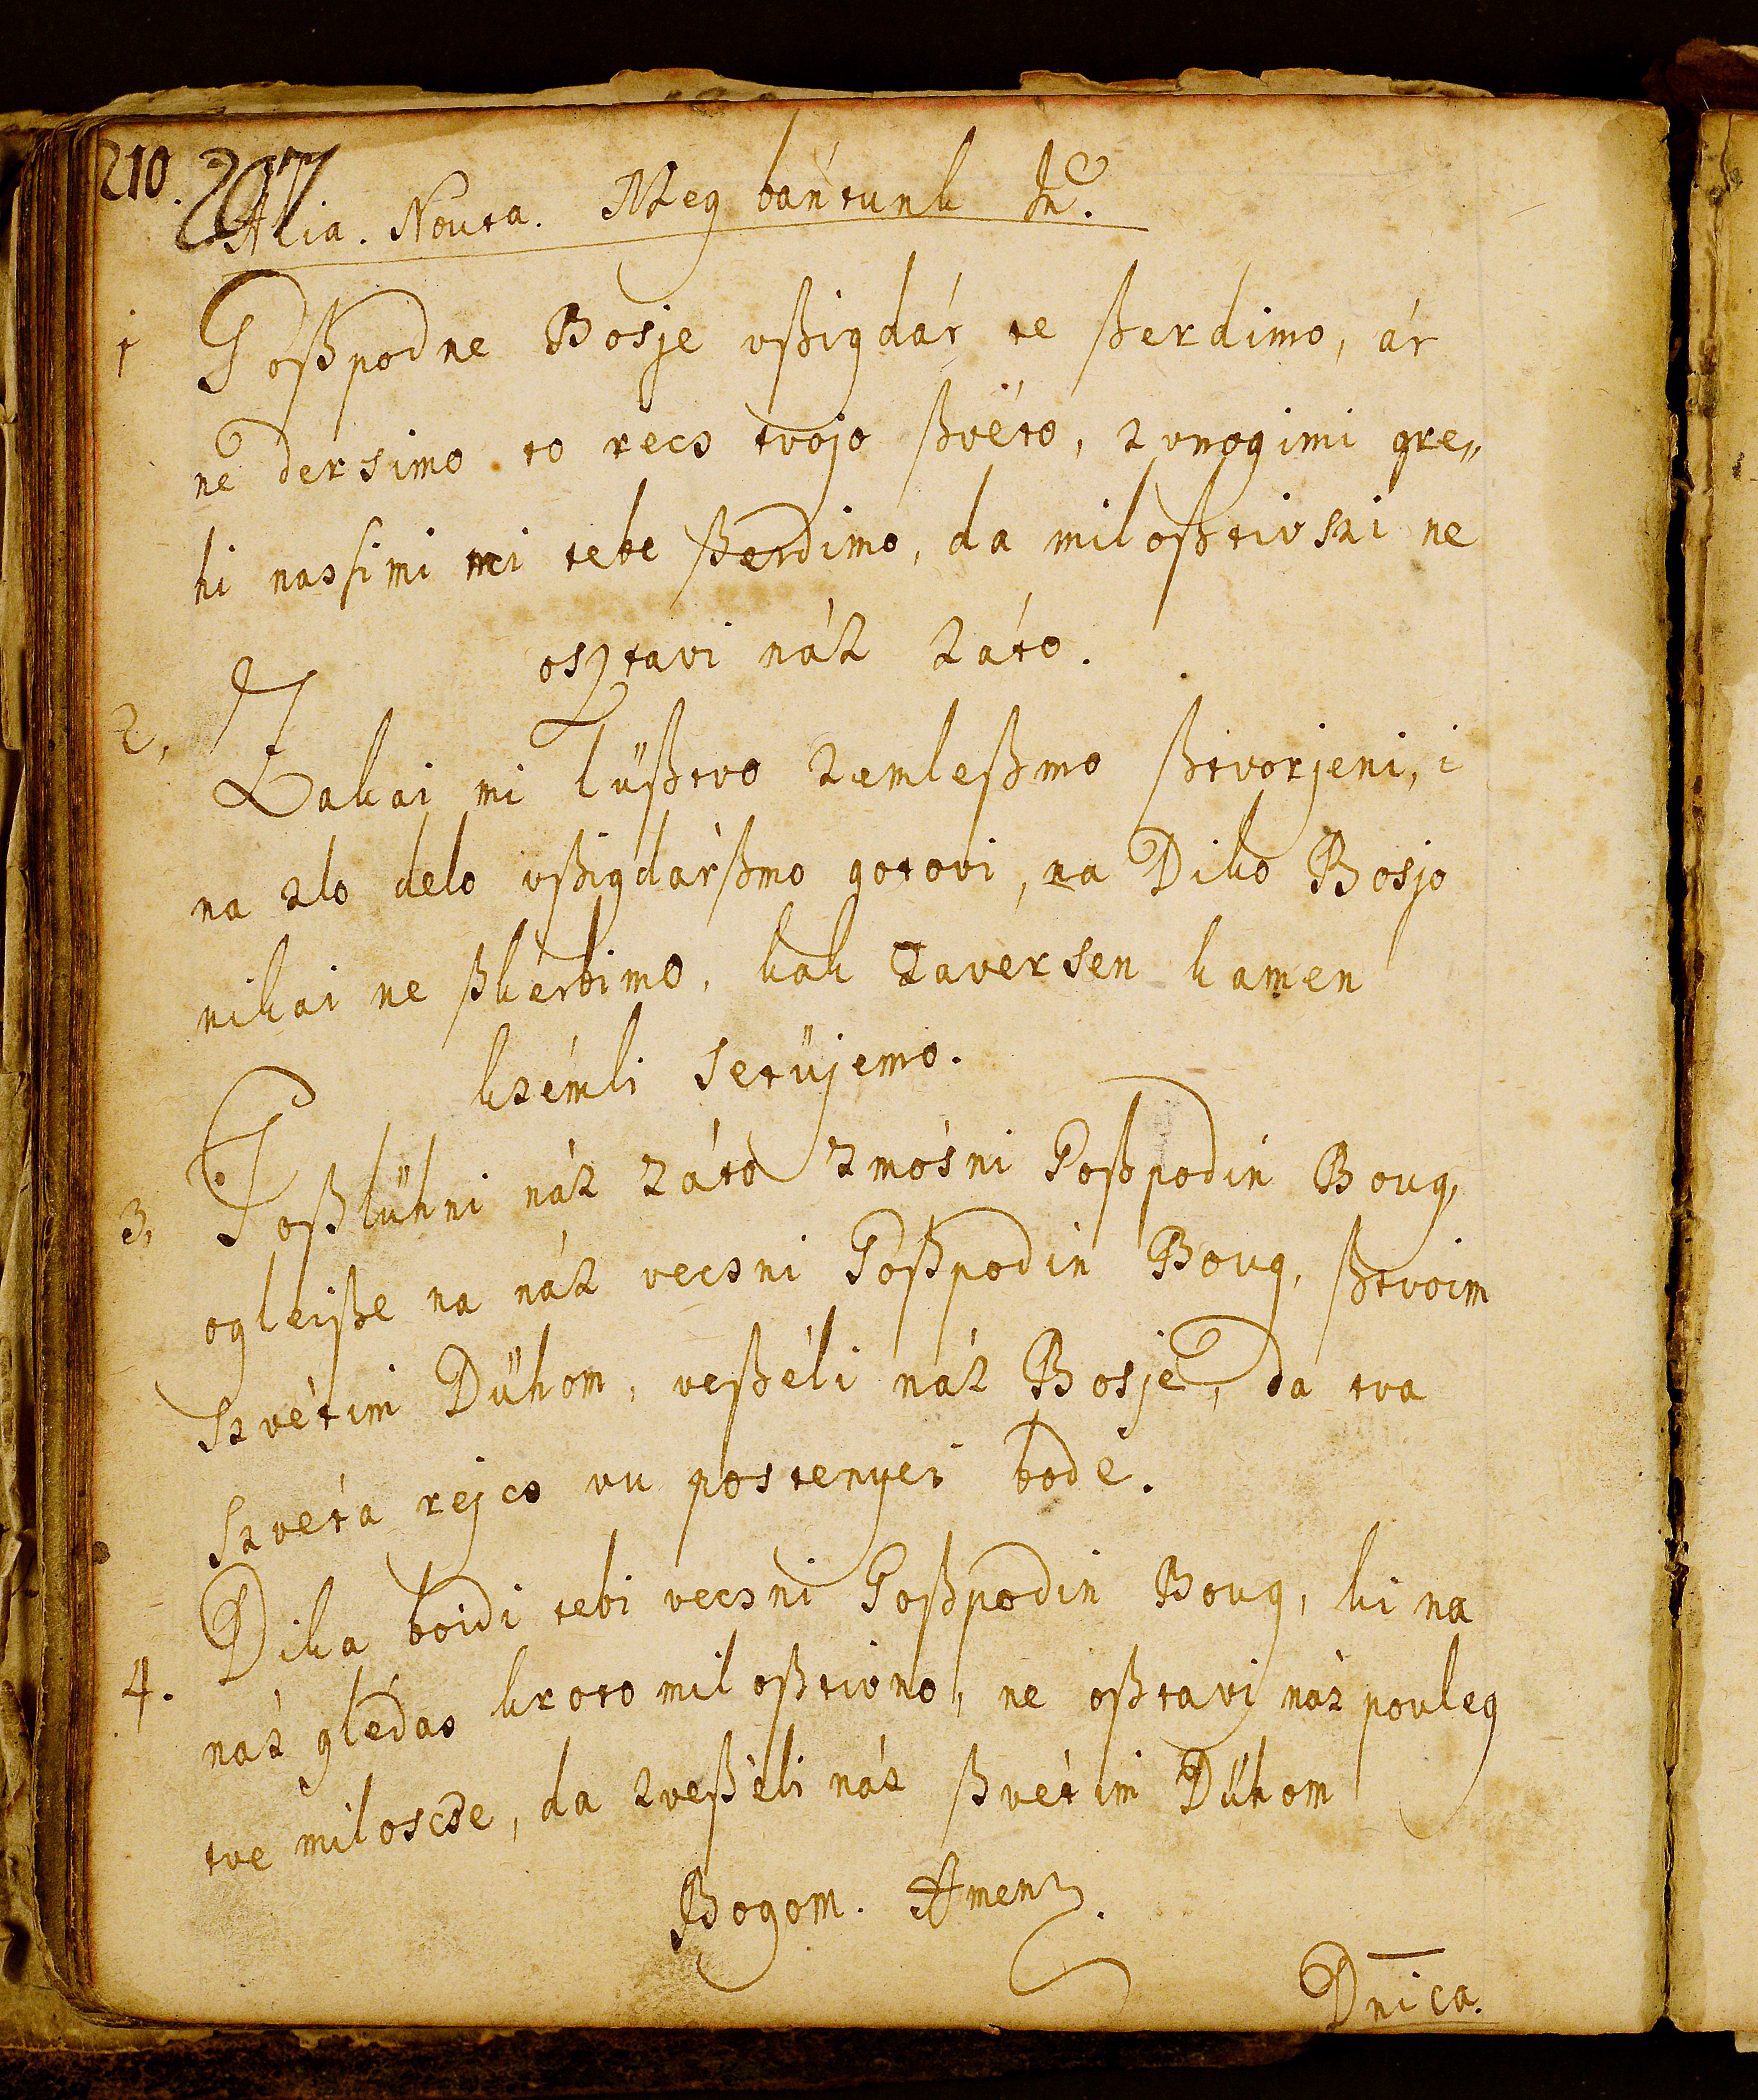 210. 207
Alia. Nouta. Meg bántunk Jn.
1 Goßpodne Bosje vßigdár te ßerdimo, ár
ne dersimo to recs tvojo ßvéto, z vnogimi gre„
hi nassimi mi tebe ßerdimo, da miloßtivszi ne
osztavi náz záto.
2. Zakai mi lüßtvo zemleßmo ßtvorjeni, i
na zlo delo vßigdárßmo gotovi, na Diko Bosjo
nikai ne ßkerbimo, kak zaversen kamen
kzémli setüjemo.
3. Poßlühni náz záto zmósni Goßpodin Boug,
ogleiße na náz vecsni Goßpodin Boug, ßtvoim
szvétim Dühom, veßéli náz Bosje, da tva
szvéta rejcs vu postenyei bode.
4. Dika boidi tebi vecsni Goßpodin Boug, ki na
náz glédas kroto miloßtivno, ne oßtavi náz pouleg
tve miloscse, da zveßéli náz ßvétim Dühom
Bogom. Amen.
Dnica.